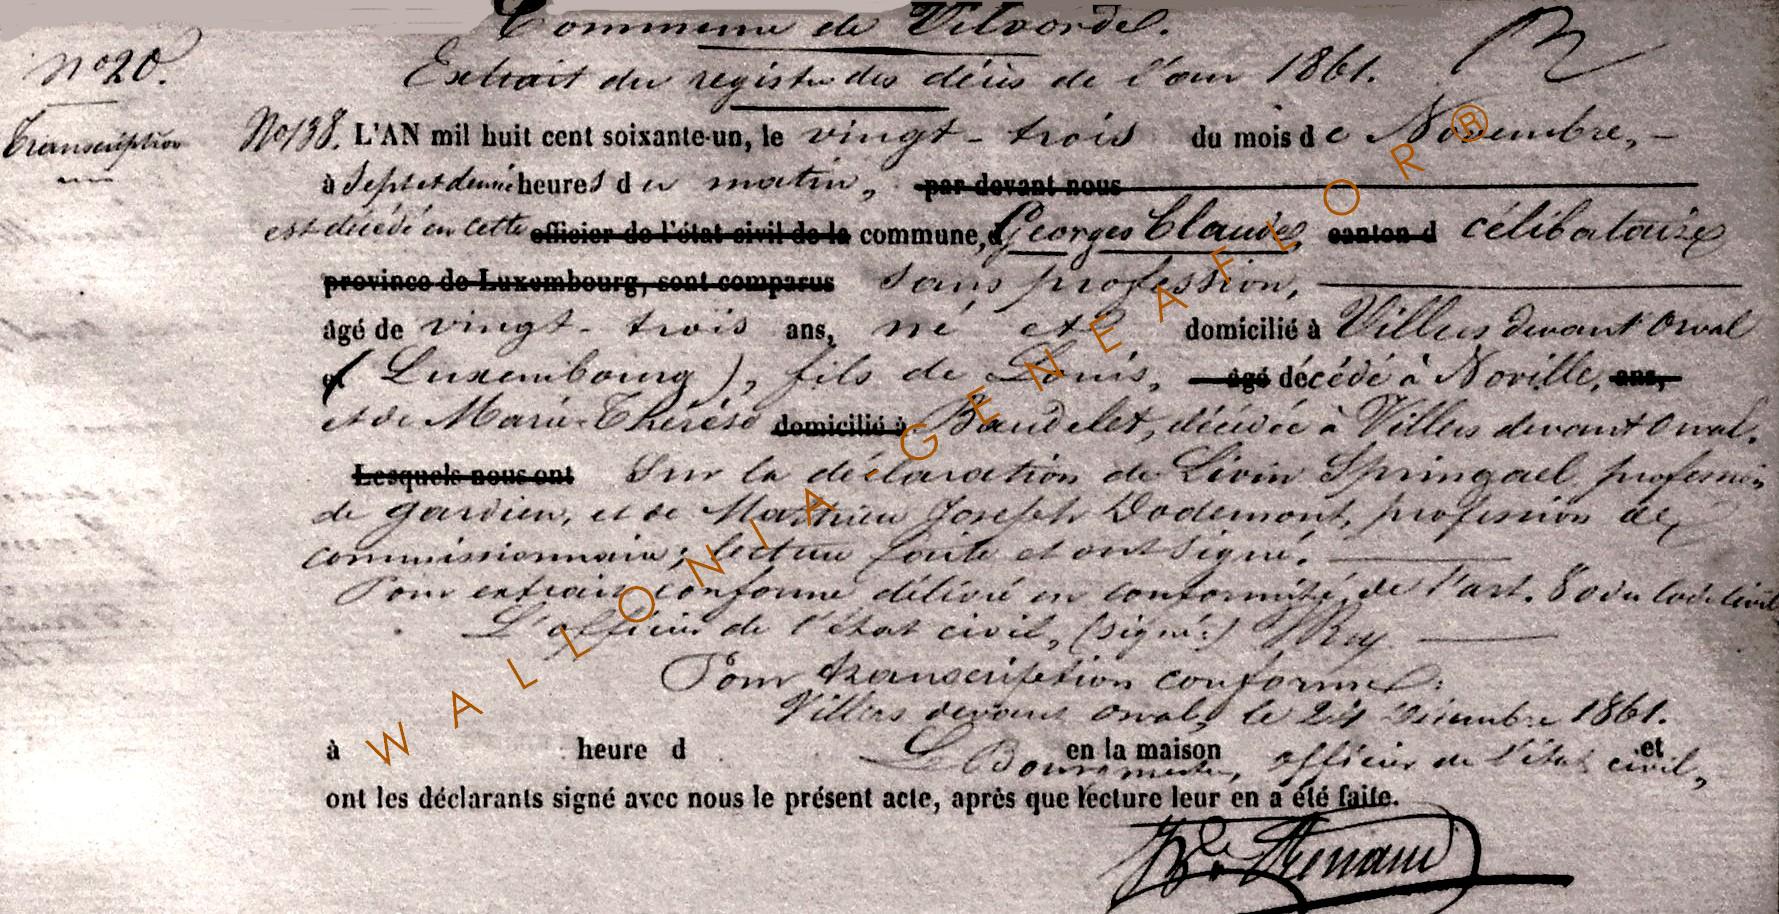 Commune de Vilvorde.
No 20.
Extrait du registre des décès de l'an 1861.
Transcription
No 138. L'AN mil huit cent soixante-un, le vingt-trois du mois de Novembre,
à Sept et demie heures du matin, par devant nous
est décédé en cette officier de l'état civil de la commune, Georges Claude, canton d célibataire
province de Luxembourg, sont comparus sans profession,
âgé de vingt-trois ans, né et domicilié à Villers devant Orval
(Luxembourg), fils de Louis, âgé décédé à Noville, ans,
et de Marie-Thérèse domicilié à Baudelet, décédée à Villers devant Orval.
Lesquels nous ont Sur la déclaration de Livin Springael, profession
de gardien, et de Mathieu Joseph Dodemont, profession de
commissionnaire; lecture faite et ont signé.
Pour extrait conforme délivré en conformité de l'art. 80 du Code civil
L'officier de l'état civil, (signé:)
Pour transcription conforme:
Villers devant Orval, le 24 Décembre 1861.
à heure d en la maison et
Le Bourgmestre, officier de l'état civil,
ont les déclarants signé avec nous le présent acte, après que lecture leur en a été faite.
WALLONIA-GENEAFLOR®